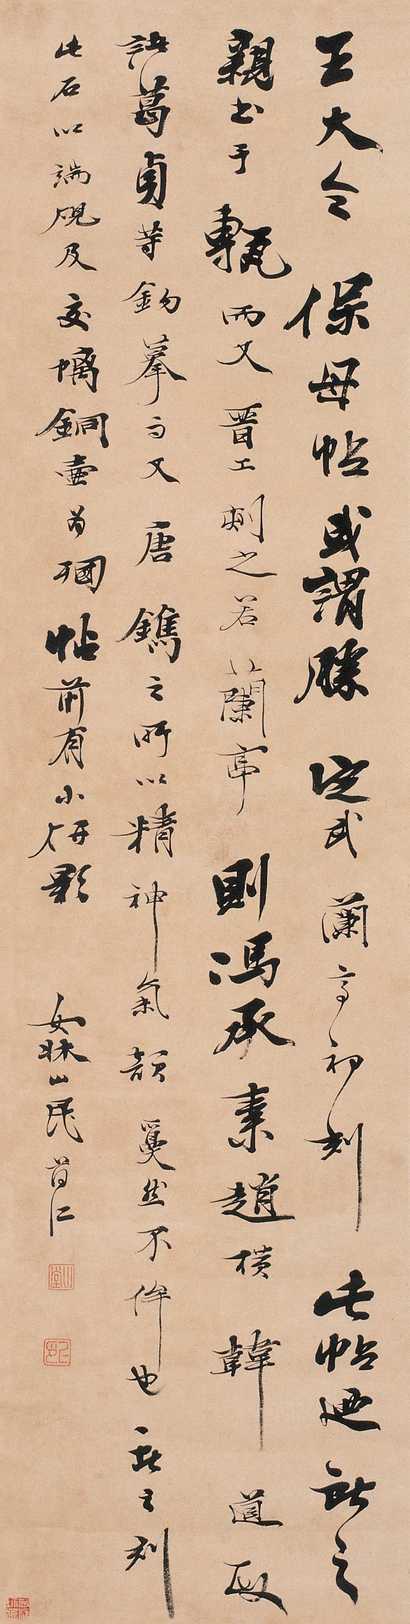 王大令保母帖或謂勝定武蘭亭初刻此帖迺獻之
親書于甎而又晉工刻之若蘭亭則馮承素趙模韓道政
諸葛貞等鉤摹而又唐鐫之所以精神氣韻敻然不侔也獻之刻
此石以端硯及交螭銅壺為殉帖前有小研影
山民首仁